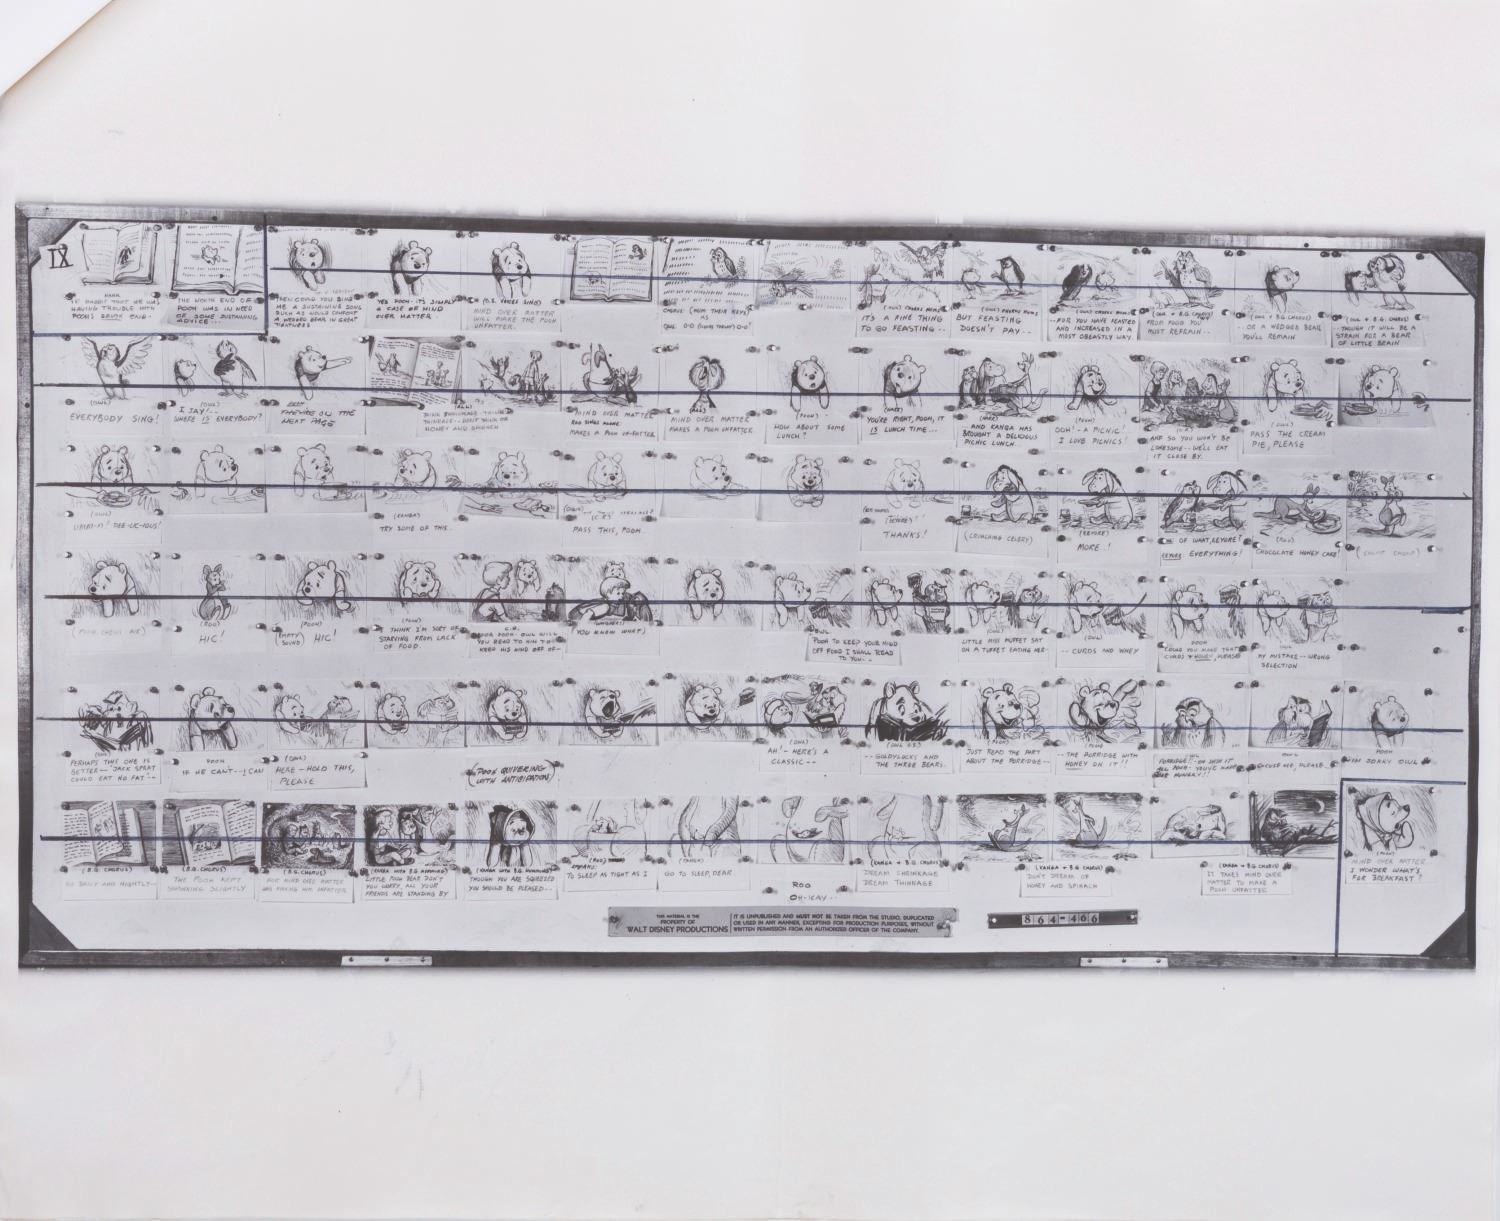 IX
NARR
IF RABBIT THAT HE WAS
HAVING TROUBLE WITH
POOH'S SOUTH END-
THE NORTH END OF
POOH WAS IN NEED
OF SOME SUSTAINING
ADVICE...
THEN COULD YOU SING
ME A SUSTAINING SONG
SUCH AS WOULD COMFORT
A WEDGED BEAR IN GREAT
TIGHTNESS
YES POOH - IT'S SIMPLY
A CASE OF MIND
OVER MATTER -
(O.S. VOICES SING)
MIND OVER MATTER
WILL MAKE THE POOH
UNFATTER.
CHORUS: (HUM THEIR KEYS)
AS
OWL
(OWL) CHORUS HUMS
IT'S A FINE THING
TO GO FEASTING--
(OWL) CHORUS HUMS
BUT FEASTING
DOESN'T PAY--
(OWL) CHORUS HUMS
--FOR YOU HAVE FEASTED
AND INCREASED IN A
MOST OBEASTLY WAY.
(OWL + B.G. CHORUS)
FROM FOOD YOU
MUST REFRAIN--
(OWL + B.G. CHORUS)
--OR A WEDGED BEAR
YOU'LL REMAIN
(OWL + B.G. CHORUS)
-THOUGH IT WILL BE A
STRAIN FOR A BEAR
OF LITTLE BRAIN
(OWL)
EVERYBODY SING!
(OWL)
I SAY!--
WHERE IS EVERYBODY?
THEY'RE ON THE
NEXT PAGE
(ALL)
THINK SHRINKAGE - THINK
THINKAGE-- DON'T THINK OF
HONEY AND SPINACH
MIND OVER MATTER
ROO SINGS ALONE
MAKES A POOH UN-FATTER
(ALL)
MIND OVER MATTER
MAKES A POOH UNFATTER.
(POOH)
HOW ABOUT SOME
LUNCH?
(NARR)
YOU'RE RIGHT, POOH, IT
IS LUNCH TIME...
(NARR)
...AND KANGA HAS
BROUGHT A DELICIOUS
PICNIC LUNCH.
(POOH)
OOH! - A PICNIC!
I LOVE PICNICS!
AND SO YOU WON'T BE
LONESOME-- WE'LL EAT
IT CLOSE BY.
(OWL)
PASS THE CREAM
PIE, PLEASE
(OWL)
UMM-M! DEE-LIC-IOUS!
(KANGA)
TRY SOME OF THIS..
PASS THIS, POOH..
(EEYORE)
THANKS!
(CRUNCHING CELERY)
(EEYORE)
MORE..!
OF WHAT, EEYORE?
EEYORE EVERYTHING!
(ROO)
CHOCOLATE HONEY CAKE!
(CHOMP CHOMP)
(POOH CHEWS AIR)
(ROO)
HIC!
(POOH)
(EMPTY SOUND) HIC!
(POOH)
I THINK I'M SORT OF
STARVING FROM LACK
OF FOOD.
C.R.
POOR POOH - OWL WILL
YOU READ TO HIM TO
KEEP HIS MIND OFF OF--
(WHISPERS)
(YOU KNOW WHAT)
OWL
POOH TO KEEP YOUR MIND
OFF FOOD I SHALL READ
TO YOU--
(OWL)
LITTLE MISS MUFFET SAT
ON A TUFFET EATING HER-
(OWL)
-- CURDS AND WHEY
POOH
COULD YOU MAKE THAT
CURDS + HONEY, PLEASE
OWL
MY MISTAKE -- WRONG
SELECTION
(OWL)
PERHAPS THIS ONE IS
BETTER-- 'JACK SPRAT
COULD EAT NO FAT'--
POOH
IF HE CAN'T--I CAN
(OWL)
HERE - HOLD THIS,
PLEASE
(POOH QUIVERING
WITH ANTICIPATION)
(OWL)
AH! - HERE'S A
CLASSIC--
(OWL O.S.)
--GOLDYLOCKS AND
THE THREE BEARS.
(POOH)
JUST READ THE PART
ABOUT THE PORRIDGE--
(POOH)
-- THE PORRIDGE WITH
HONEY ON IT!!
OWL
PORRIDGE!! - OH DASH IT
ALL POOH - YOU'VE MADE
ME HUNGRY!!
OWL
EXCUSE ME, PLEASE
POOH
I'M SORRY OWL
(B.G. CHORUS)
SO DAILY AND NIGHTLY--
(B.G. CHORUS)
THE POOH KEPT
SHRINKING SLIGHTLY
(B.G. CHORUS)
FOR MIND OVER MATTER
WAS MAKING HIM UNFATTER
(KANGA WITH B.G. HUMMING)
LITTLE POOH BEAR DON'T
YOU WORRY, ALL YOUR
FRIENDS ARE STANDING BY
(KANGA WITH B.G. HUMMING)
THOUGH YOU ARE SQUEEZED
YOU SHOULD BE PLEASED--
(ROO)
TO SLEEP AS TIGHT AS I
(KANGA)
GO TO SLEEP, DEAR
ROO
OH-KAY..
(KANGA + B.G. CHORUS)
DREAM SHRINKAGE
DREAM THINKAGE
(KANGA + B.G. CHORUS)
DON'T DREAM OF
HONEY AND SPINACH
(KANGA + B.G. CHORUS)
IT TAKES MIND OVER
MATTER TO MAKE A
POOH UNFATTER
(POOH)
MIND OVER MATTER
I WONDER WHAT'S
FOR BREAKFAST?
THIS MATERIAL IS THE
PROPERTY OF
WALT DISNEY PRODUCTIONS
IT IS UNPUBLISHED AND MUST NOT BE TAKEN FROM THE STUDIO, DUPLICATED
OR USED IN ANY MANNER, EXCEPTING FOR PRODUCTION PURPOSES, WITHOUT
WRITTEN PERMISSION FROM AN AUTHORIZED OFFICER OF THE COMPANY.
864-466